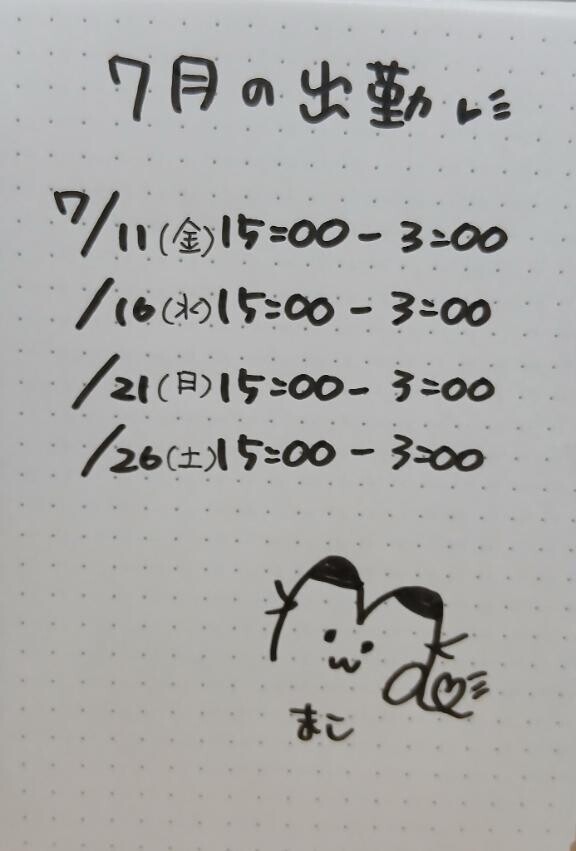 7月の出勤
7/11(金)15:00-3:00
/16(水)15:00-3:00
/21(日)15:00-3:00
/26(土)15:00-3:00
まこ